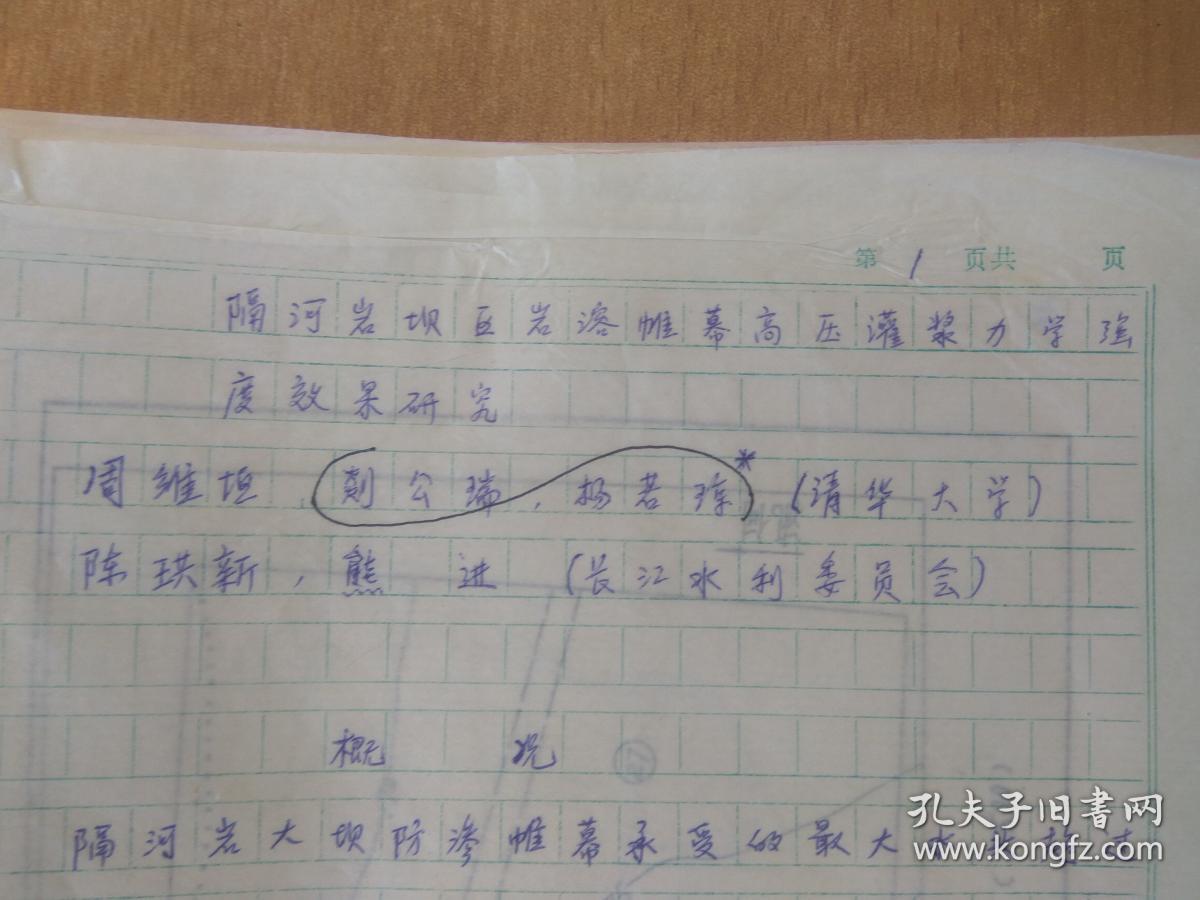 第 1 页共 页
隔河岩坝区岩溶帷幕高压灌浆力学强
度效果研究
周维垣，剡公瑞，杨若琼*（清华大学）
陈珙新，熊进（长江水利委员会）
概况
隔河岩大坝防渗帷幕承受的最大水
孔夫子旧书网
www.kongfz.com